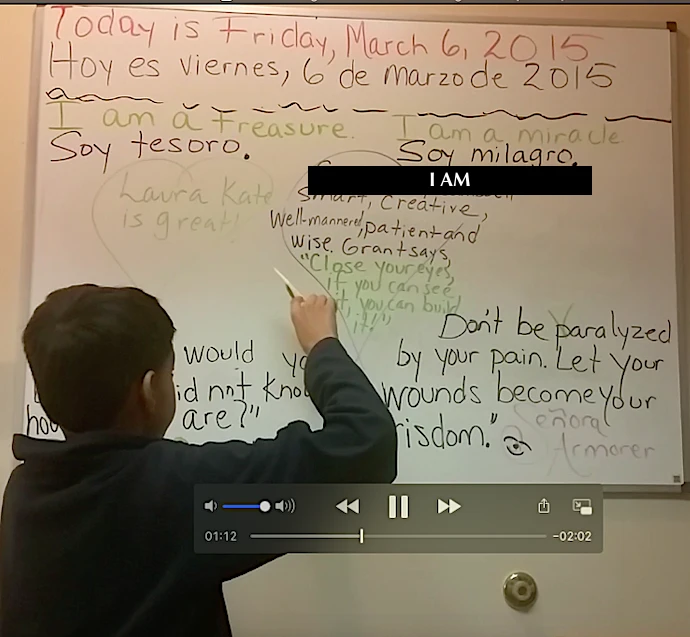 Today is Friday, March 6, 2015
Hoy es viernes, 6 de marzo de 2015
I am a treasure. I am a miracle
Soy tesoro. Soy milagro.
I AM
Laura Kate
is great!
Smart, Creative,
Well-mannered, patient and
wise. Grant says,
"Close your eyes,
If you can see
it, you can build
it!"
would
id not know
are?"
Don't be paralyzed
by your pain. Let your
wounds become your
isdom."
eñora
Armorer
01:12
-02:02